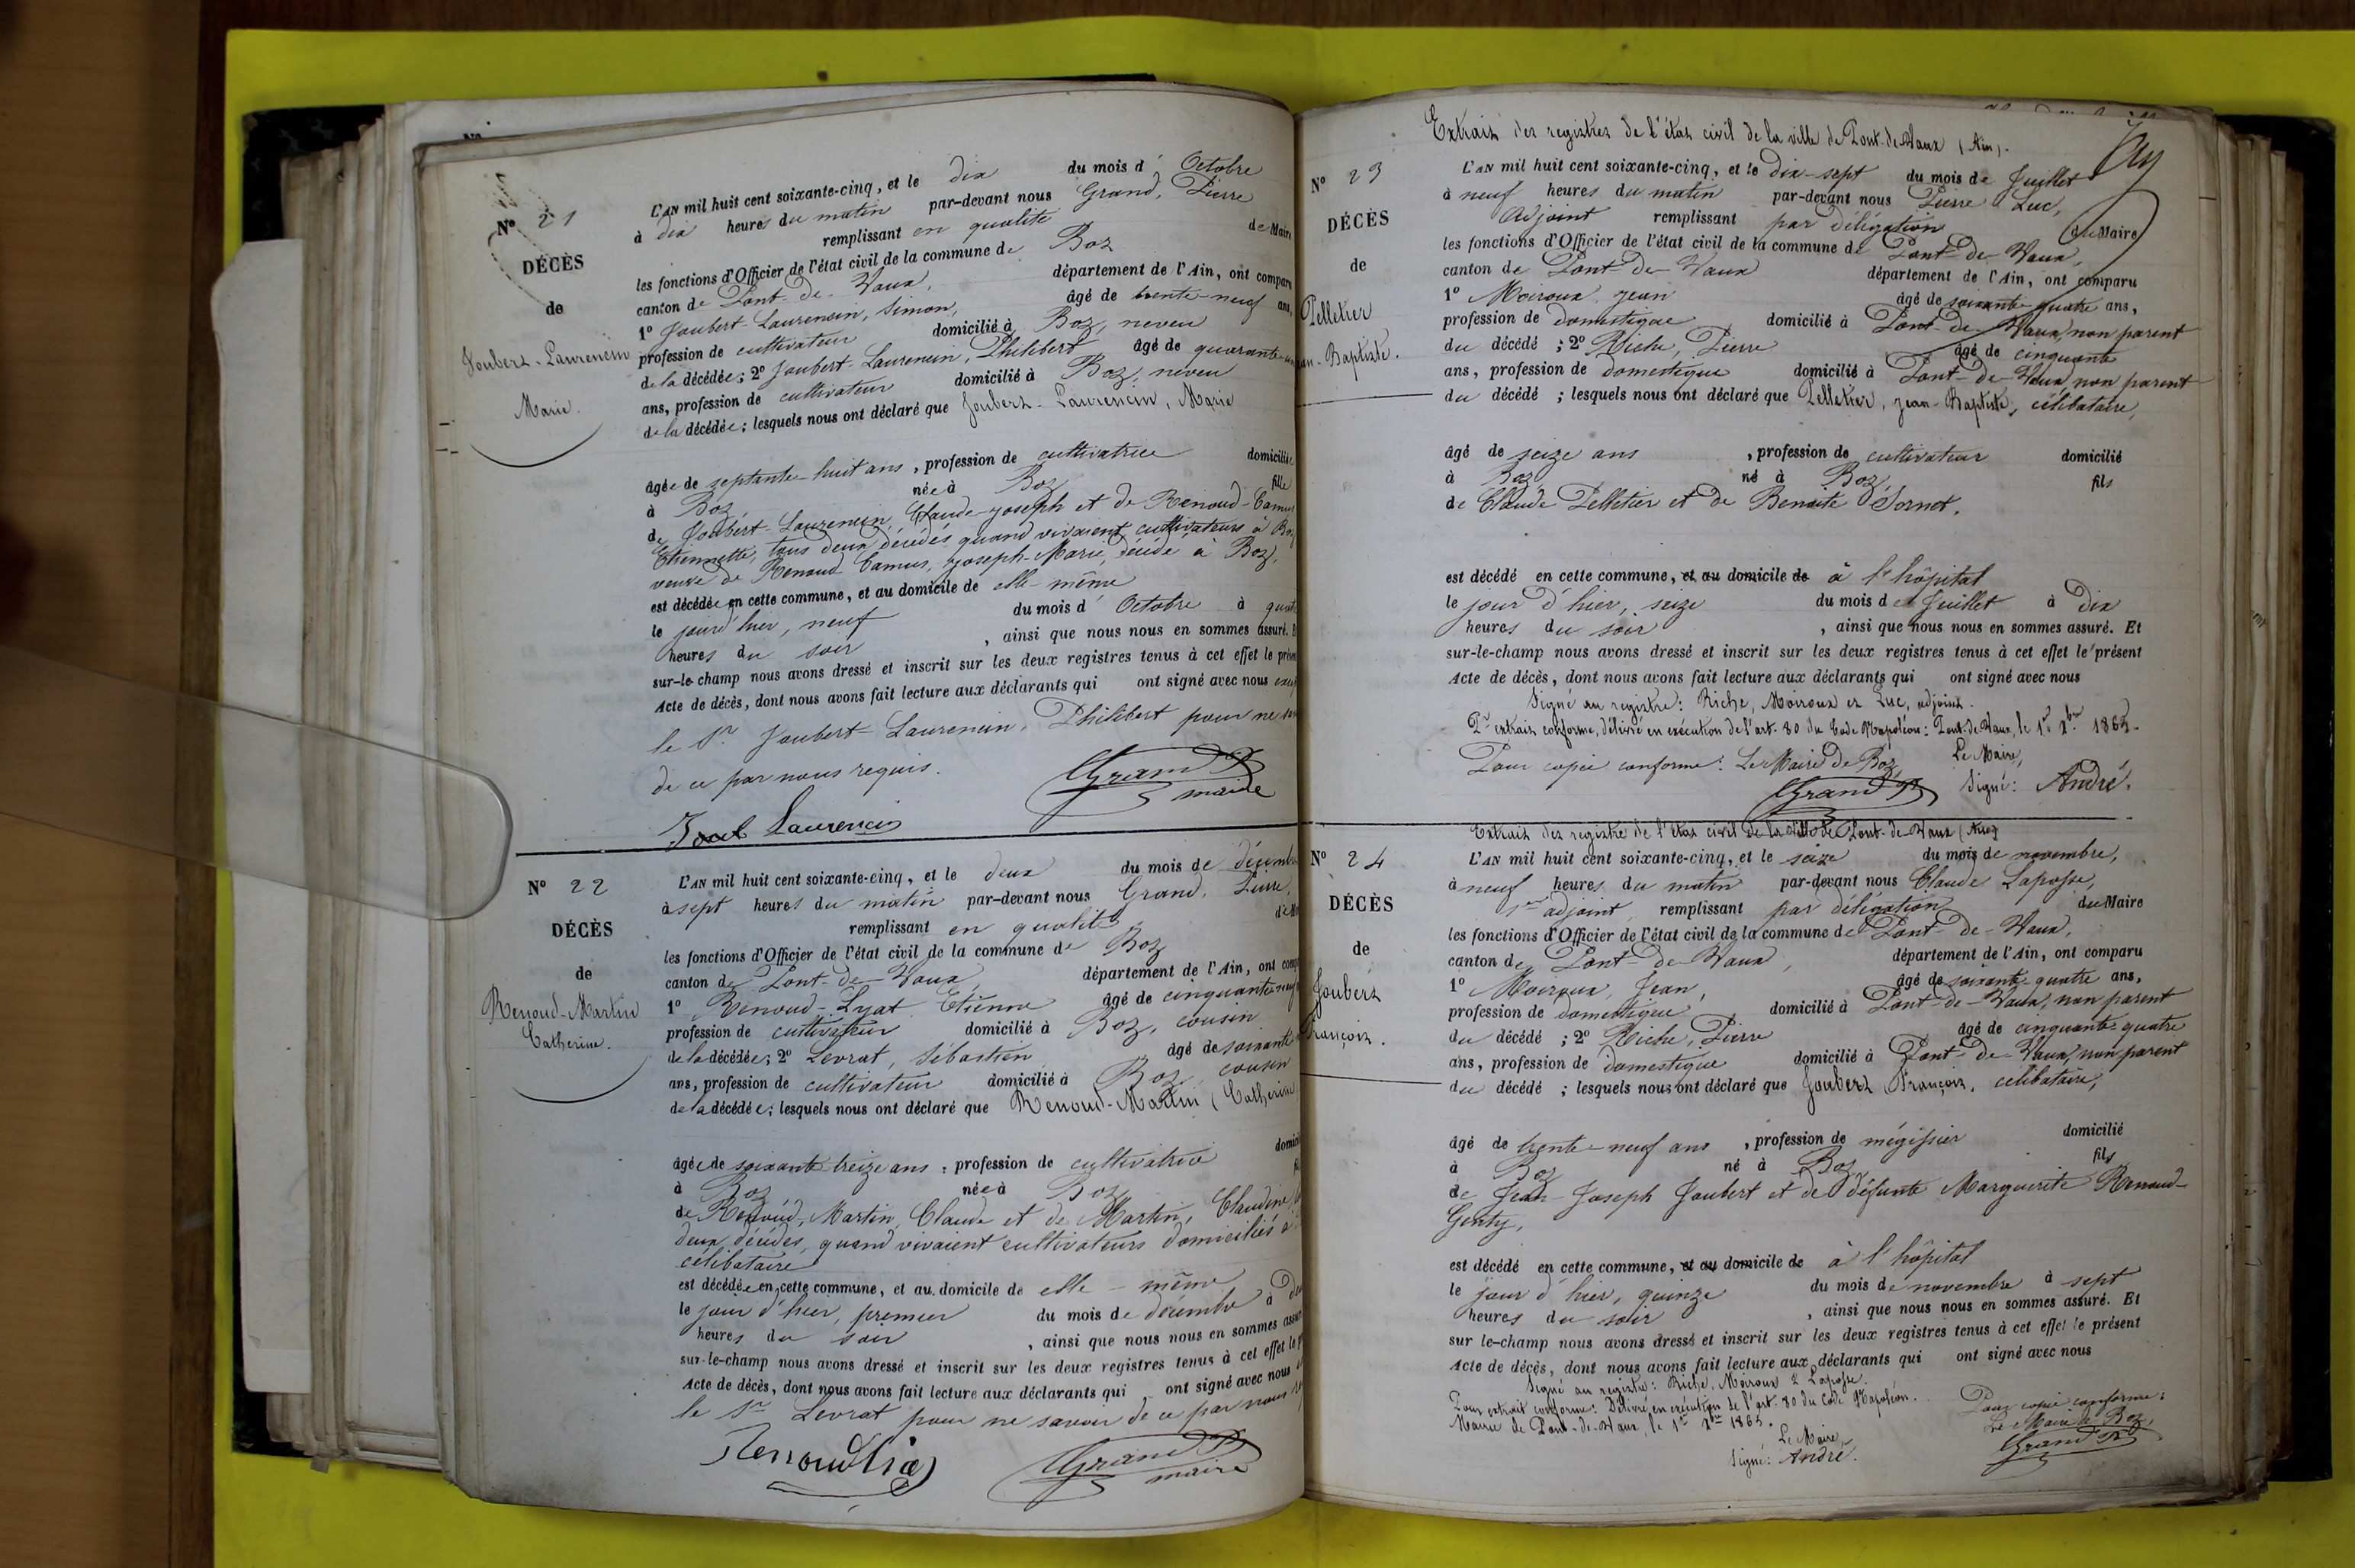 N° 21
DÉCÈS
de
Joubert-Laurencin
Marie.
L'AN mil huit cent soixante-cinq, et le dix du mois d' Octobre
à dix heures du matin par-devant nous Grand, Pierre
remplissant en qualité de Maire
les fonctions d'Officier de l'état civil de la commune de Boz
canton de Pont-de-Vaux, département de l'Ain, ont compar
1° Joubert-Laurencin, Simon, âgé de trente-neuf ans,
profession de cultivateur domicilié à Boz, neveu
de la décédée; 2° Joubert-Laurencin, Philibert âgé de quarante
ans, profession de cultivateur domicilié à Boz, neveu
de la décédée; lesquels nous ont déclaré que Joubert-Laurencin, Marie
âgée de septante-huit ans, profession de cultivatrice domiciliée
à Boz, née à Boz fille
de Joubert-Laurencin, Claude-Joseph et de Renoud-Camus
Etiennette, tous deux décédés quand vivaient cultivateurs à Boz
veuve de Renoud Camus, Joseph-Marie, décédé à Boz,
est décédée en cette commune, et au domicile de elle-même
le jour d'hier, neuf du mois d' Octobre à
heures du soir, ainsi que nous nous en sommes assuré. Et
sur-le-champ nous avons dressé et inscrit sur les deux registres tenus à cet effet le présen
Acte de décès, dont nous avons fait lecture aux déclarants qui ont signé avec nous
le Sr Joubert-Laurencin, Philibert pour ne
de ce par nous requis.
Joub Laurencin
Grand P
maire
N° 22
DÉCÈS
de
Renoud-Martin
Catherine.
L'AN mil huit cent soixante-cinq, et le deux du mois de décemb
à sept heures du matin par-devant nous Grand, Pierre,
remplissant en qualité de
les fonctions d'Officier de l'état civil de la commune de Boz
canton de Pont-de-Vaux, département de l'Ain, ont comp
1° Renoud-Lyat Etienne âgé de cinquante-neuf
profession de cultivateur domicilié à Boz, cousin
de la décédée; 2° Levrat, Sébastien âgé de soixante
ans, profession de cultivateur domicilié à Boz cousin
de la décédée; lesquels nous ont déclaré que Renoud-Martin, Catherine
âgée de soixante-treize ans, profession de cultivatrice domici
à Boz née à Boz
de Renoud-Martin, Claude et de Martin, Claudine
deux décédés, quand vivaient cultivateurs domiciliés à
célibataire
est décédée en cette commune, et au domicile de elle-même
le jour d'hier, premier du mois de décembre à
heures du soir, ainsi que nous nous en sommes assur
sur-le-champ nous avons dressé et inscrit sur les deux registres tenus à cet effet le
Acte de décès, dont nous avons fait lecture aux déclarants qui ont signé avec nous
le Sr Levrat pour ne savoir de ce par nous
Renoud
Grand P
maire
Extrait des registres de l'état civil de la ville de Pont-de-Vaux (Ain).
N° 23
DÉCÈS
de
Pelletier
an-Baptiste.
L'AN mil huit cent soixante-cinq, et le dix-sept du mois de Juillet
à neuf heures du matin par-devant nous Pierre Luc,
adjoint remplissant par délégation du Maire
les fonctions d'Officier de l'état civil de la commune de Pont-de-Vaux,
canton de Pont-de-Vaux département de l'Ain, ont comparu
1° Moiroux Jean âgé de soixante-quatre ans,
profession de domestique domicilié à Pont-de-Vaux, non parent
du décédé; 2° Riche, Pierre âgé de cinquante
ans, profession de domestique domicilié à Pont-de-Vaux, non parent
du décédé; lesquels nous ont déclaré que Pelletier, Jean-Baptiste, célibataire,
âgé de seize ans, profession de cultivateur domicilié
à Boz, né à Boz, fils
de Claude Pelletier et de Benoite Sornet.
est décédé en cette commune, et au domicile de à l'hôpital
le jour d'hier, seize du mois de Juillet à dix
heures du soir, ainsi que nous nous en sommes assuré. Et
sur-le-champ nous avons dressé et inscrit sur les deux registres tenus à cet effet le présent
Acte de décès, dont nous avons fait lecture aux déclarants qui ont signé avec nous
Signé au registre: Riche, Moiroux et Luc, adjoint.
Pr extrait conforme, délivré en exécution de l'art. 80 du Code Napoléon: Pont-de-Vaux, le 1er Xbre 1865.
Pour copie conforme: Le Maire de Boz, Le Maire,
Grand P Signé: André.
Extrait des registre de l'état civil de la ville de Pont-de-Vaux (Ain)
N° 24
DÉCÈS
de
Joubert
François.
L'AN mil huit cent soixante-cinq, et le seize du mois de novembre,
à neuf heures du matin par-devant nous Claude Laposse,
1er adjoint, remplissant par délégation du Maire
les fonctions d'Officier de l'état civil de la commune de Pont-de-Vaux,
canton de Pont-de-Vaux, département de l'Ain, ont comparu
1° Moiroux, Jean, âgé de soixante-quatre ans,
profession de domestique domicilié à Pont-de-Vaux, non parent
du décédé; 2° Riche, Pierre âgé de cinquante-quatre
ans, profession de domestique domicilié à Pont-de-Vaux, non parent
du décédé; lesquels nous ont déclaré que Joubert François, célibataire,
âgé de trente-neuf ans, profession de mégissier domicilié
à Boz né à Boz fils
de Jean-Joseph Joubert et de défunte Marguerite Renoud-
Genty,
est décédé en cette commune, et au domicile de à l'hôpital
le jour d'hier, quinze du mois de novembre à sept
heures du soir, ainsi que nous nous en sommes assuré. Et
sur le-champ nous avons dressé et inscrit sur les deux registres tenus à cet effet le présent
Acte de décès, dont nous avons fait lecture aux déclarants qui ont signé avec nous
Signé au registre: Riche, Moiroux & Laposse.
Pour extrait conforme: Délivré en exécution de l'art. 80 du Code Napoléon.
Mairie de Pont-de-Vaux, le 1er Xbre 1865.
Le Maire,
Signé: André.
Pour copie conforme:
Le Maire de Boz,
Grand P